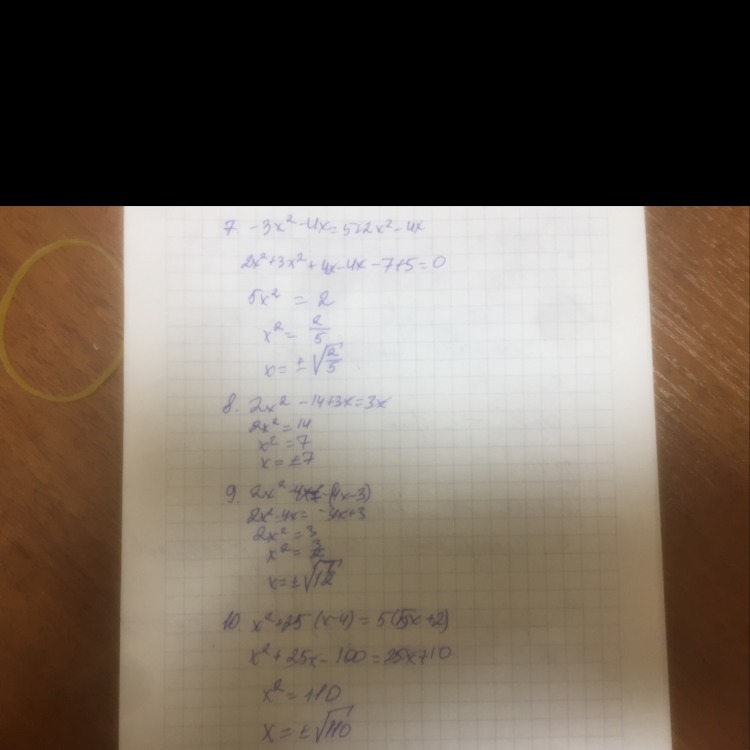 7 -3x²-4x=5+2x²-4x
2x²+3x²+4x-4x-7+5=0
5x² = 2
x² = 2/5
x = ±√(2/5)
8. 2x² -14+3x=3x
2x²=14
x²=7
x=±7
9. 2x²-4x=-(4x-3)
2x²-4x= -4x+3
2x²=3
x² =
x=±√
10. x²+25(x-4)=5(5x+2)
x²+25x-100=25x+10
x²=110
x=±√110